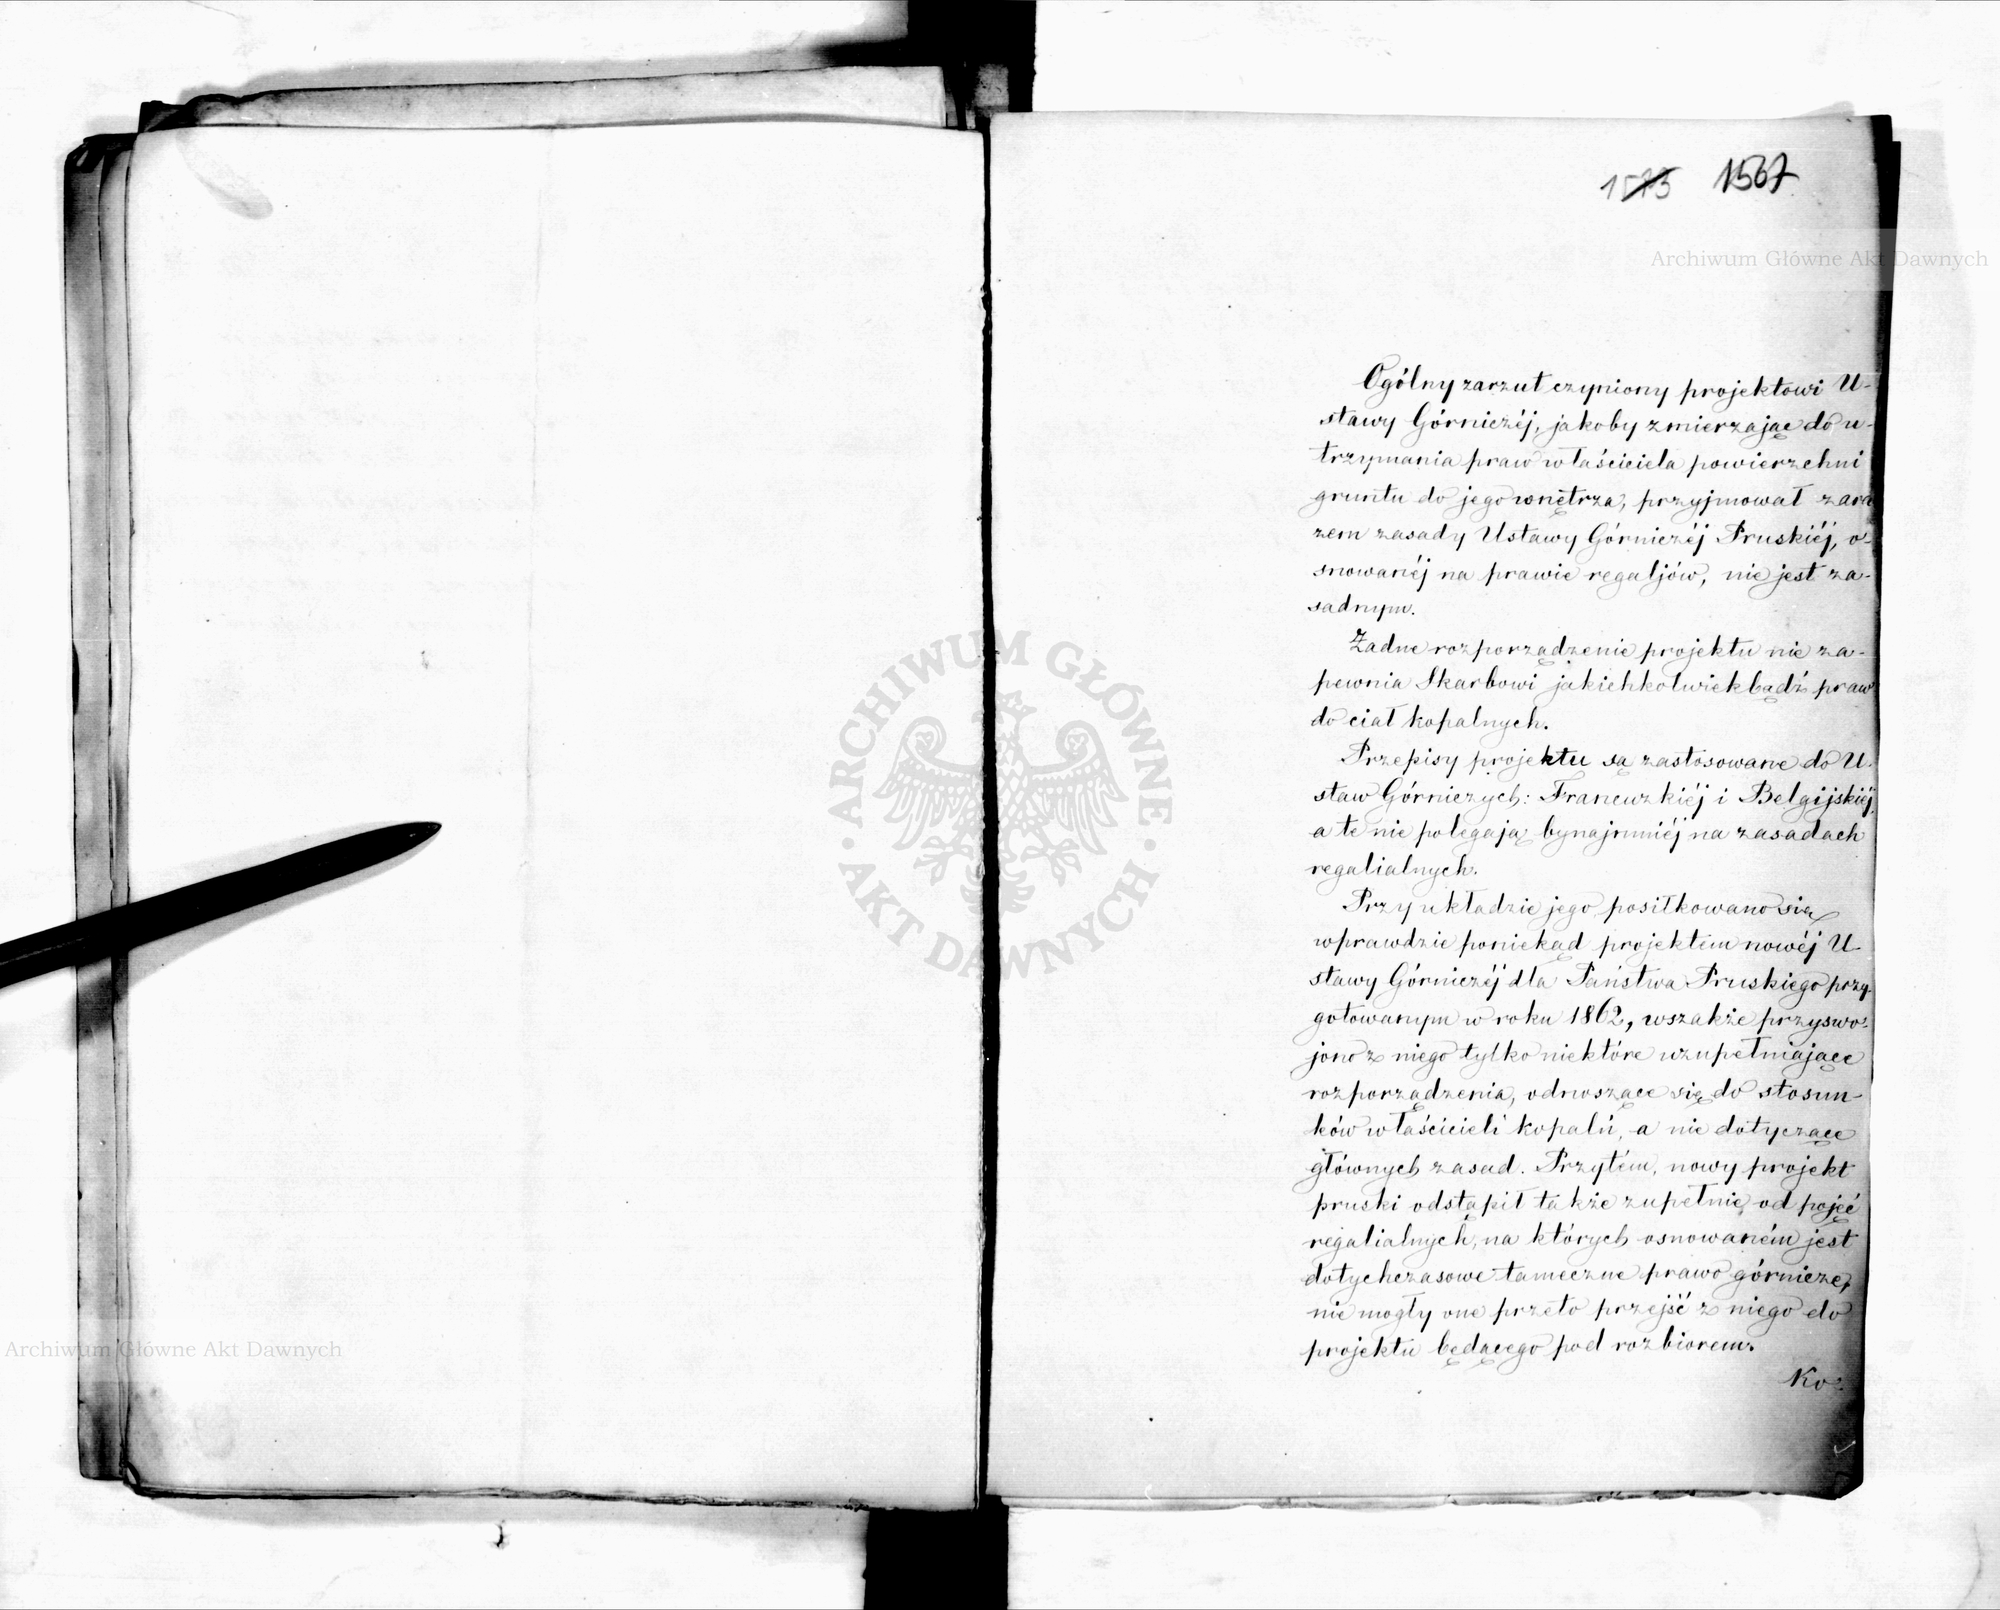 1573 1567
Archiwum Główne Akt Dawnych
Ogólny zarzut czyniony projektowi U-
stawy Górniczéj, jakoby zmierzając do u-
trzymania praw właściciela powierzchni
gruntu do jego wnętrza, przyjmował zara
zem zasady Ustawy Górniczéj Pruskiéj, o-
snowanéj na prawie regaljów, nie jest za-
sadnym.
Żadne rozporządzenie projektu nie za-
pewnia Skarbowi jakichkolwiekbądź praw
do ciał kopalnych.
Przepisy projektu są zastosowane do U-
staw Górniczych: Francuzkiéj i Belgijskiéj,
a te nie polegają bynajmniéj na zasadach
regalialnych.
Przy układzie jego posiłkowano się
wprawdzie poniekąd projektem nowéj U-
stawy Górniczéj dla Państwa Pruskiego przy-
gotowanym w roku 1862, wszakże przyswo-
jono z niego tylko niektóre uzupełniające
rozporządzenia, odnoszące się do stosun-
ków właścicieli kopalń, a nie dotyczące
głównych zasad. Przytém, nowy projekt
pruski odstąpił także zupełnie od pojęć
regalialnych, na których osnowaném jest
dotychczasowe tameczne prawo górnicze,
nie mogły one przeto przejść z niego do
projektu będącego pod rozbiorem.
Ko-
ARCHIWUM GŁÓWNE
AKT DAWNYCH
Archiwum Główne Akt Dawnych